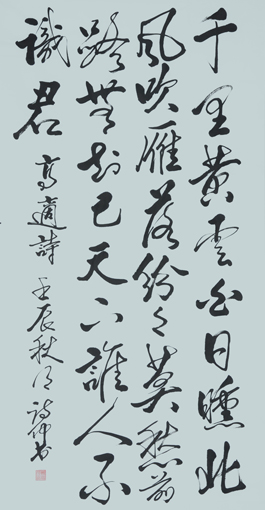 千里黄雲白日曛北
風吹雁落紛々莫愁前
路無知己天下誰人不
識君 高適詩 壬辰秋月